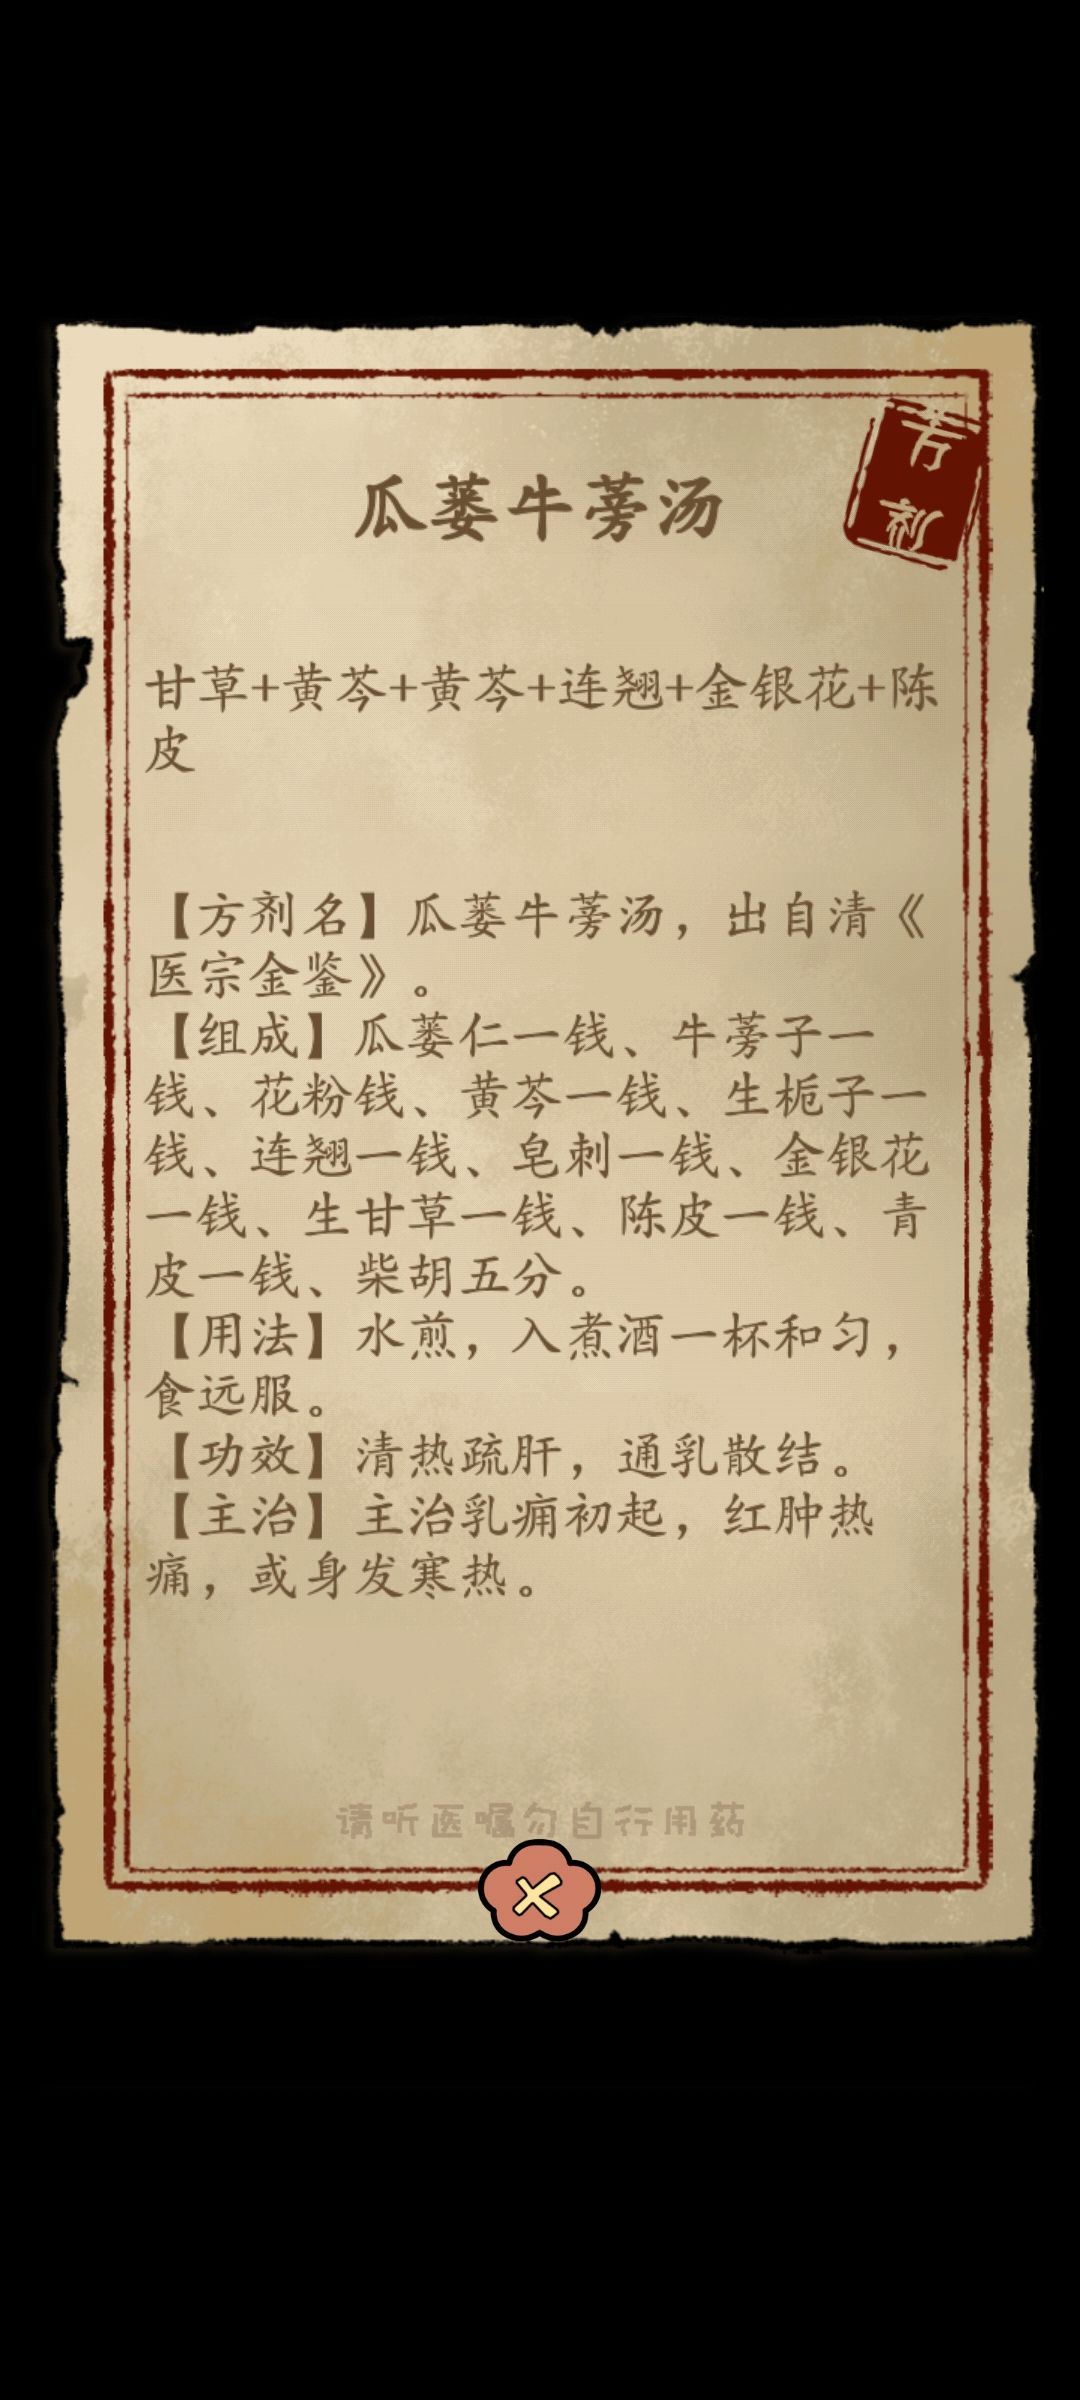 方
剂
瓜蒌牛蒡汤
甘草+黄芩+黄芩+连翘+金银花+陈
皮
【方剂名】瓜蒌牛蒡汤，出自清《
医宗金鉴》。
【组成】瓜蒌仁一钱、牛蒡子一
钱、花粉钱、黄芩一钱、生栀子一
钱、连翘一钱、皂刺一钱、金银花
一钱、生甘草一钱、陈皮一钱、青
皮一钱、柴胡五分。
【用法】水煎，入煮酒一杯和匀，
食远服。
【功效】清热疏肝，通乳散结。
【主治】主治乳痈初起，红肿热
痛，或身发寒热。
请听医嘱勿自行用药